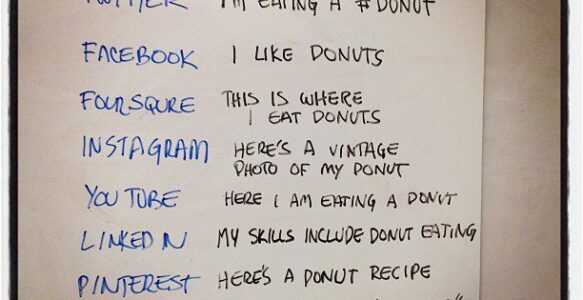 TWITTER I'M EATING A #DONUT
FACEBOOK I LIKE DONUTS
FOURSQURE THIS IS WHERE
I EAT DONUTS
INSTAGRAM HERE'S A VINTAGE
PHOTO OF MY DONUT
YOU TUBE HERE I AM EATING A DONUT
LINKED IN MY SKILLS INCLUDE DONUT EATING
PINTEREST HERE'S A DONUT RECIPE